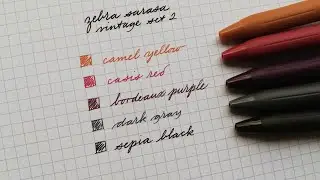 zebra sarasa
vintage set 2
camel yellow
casis red
bordeaux purple
dark gray
sepia black